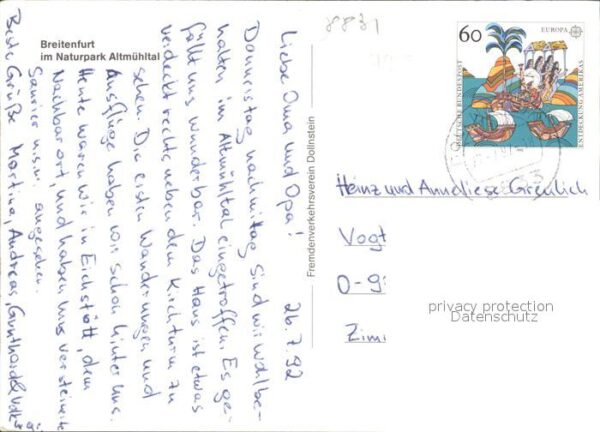 Breitenfurt
im Naturpark Altmühltal
Liebe Oma und Opa!
26.7.92
Donnerstag nachmittag sind wir wohlbe-
halten im Altmühltal eingetroffen. Es ge-
fällt uns wunderbar. Das Haus ist etwas
verdeckt rechts neben dem Kirchturm zu
sehen. Die ersten Wanderungen und
Ausflüge haben wir schon hinter uns.
Heute waren wir in Eichstätt, dem
Nachbarort, und haben uns versteinerte
Saurier u.s.w. angesehen.
Beste Grüße Martina, Andreas,
Fremdenverkehrsverein Dollnstein
8831
60
EUROPA
DEUTSCHE BUNDESPOST
ENTDECKUNG AMERIKAS
Heinz und Anneliese
Vogt
O-9
Zimi
privacy protection
Datenschutz